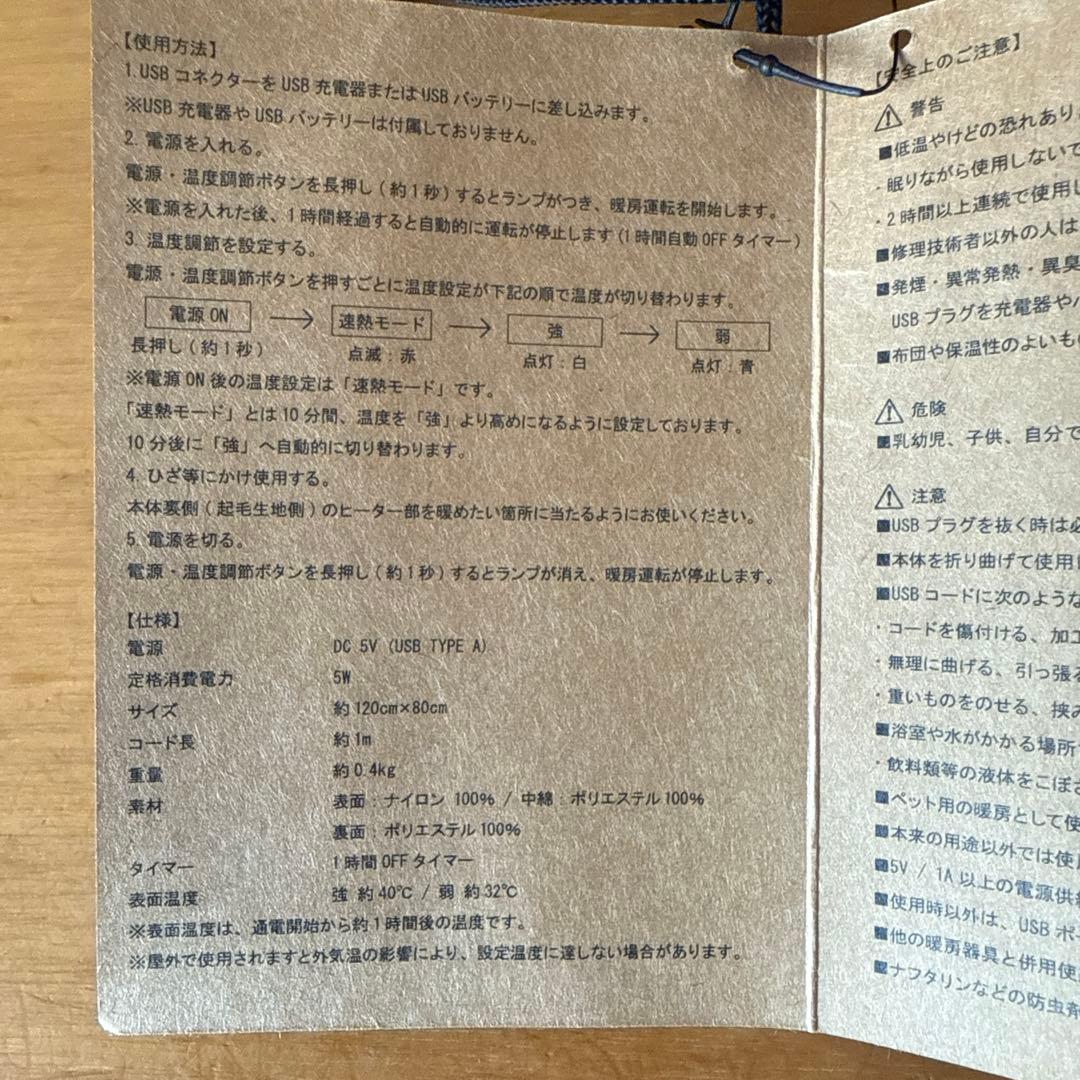 【使用方法】
1.USB コネクターを USB 充電器または USB バッテリーに差し込みます。
※USB 充電器や USB バッテリーは付属しておりません。
2. 電源を入れる。
電源・温度調節ボタンを長押し(約1秒)するとランプがつき、暖房運転を開始します。
※電源を入れた後、1時間経過すると自動的に運転が停止します(1時間自動 OFF タイマー)
3. 温度調節を設定する。
電源・温度調節ボタンを押すごとに温度設定が下記の順で温度が切り替わります。
電源 ON → 速熱モード → 強 → 弱
長押し(約1秒) 点滅:赤 点灯:白 点灯:青
※電源 ON 後の温度設定は「速熱モード」です。
「速熱モード」とは10分間、温度を「強」より高めになるように設定しております。
10分後に「強」へ自動的に切り替わります。
4. ひざ等にかけ使用する。
本体裏側(起毛生地側)のヒーター部を暖めたい箇所に当たるようにお使いください。
5. 電源を切る。
電源・温度調節ボタンを長押し(約1秒)するとランプが消え、暖房運転が停止します。
【仕様】
電源 DC 5V (USB TYPE A)
定格消費電力 5W
サイズ 約120cm×80cm
コード長 約1m
重量 約0.4kg
素材 表面:ナイロン 100% / 中綿:ポリエステル100%
裏面:ポリエステル100%
タイマー 1時間 OFF タイマー
表面温度 強 約40℃ / 弱 約32℃
※表面温度は、通電開始から約1時間後の温度です。
※屋外で使用されますと外気温の影響により、設定温度に達しない場合があります。
【安全上のご注意】
⚠ 警告
■低温やけどの恐れあり
・眠りながら使用しないで
・2時間以上連続で使用し
■修理技術者以外の人は
■発煙・異常発熱・異臭
USB プラグを充電器や
■布団や保温性のよいもの
⚠ 危険
■乳幼児、子供、自分で
⚠ 注意
■USB プラグを抜く時は必
■本体を折り曲げて使用
■USB コードに次のような
・コードを傷付ける、加工
・無理に曲げる、引っ張る
・重いものをのせる、挟み
■浴室や水がかかる場所
・飲料類等の液体をこぼさ
■ペット用の暖房として使
■本来の用途以外では使
■5V / 1A 以上の電源供給
■使用時以外は、USB ポー
■他の暖房器具と併用使
■ナフタリンなどの防虫剤